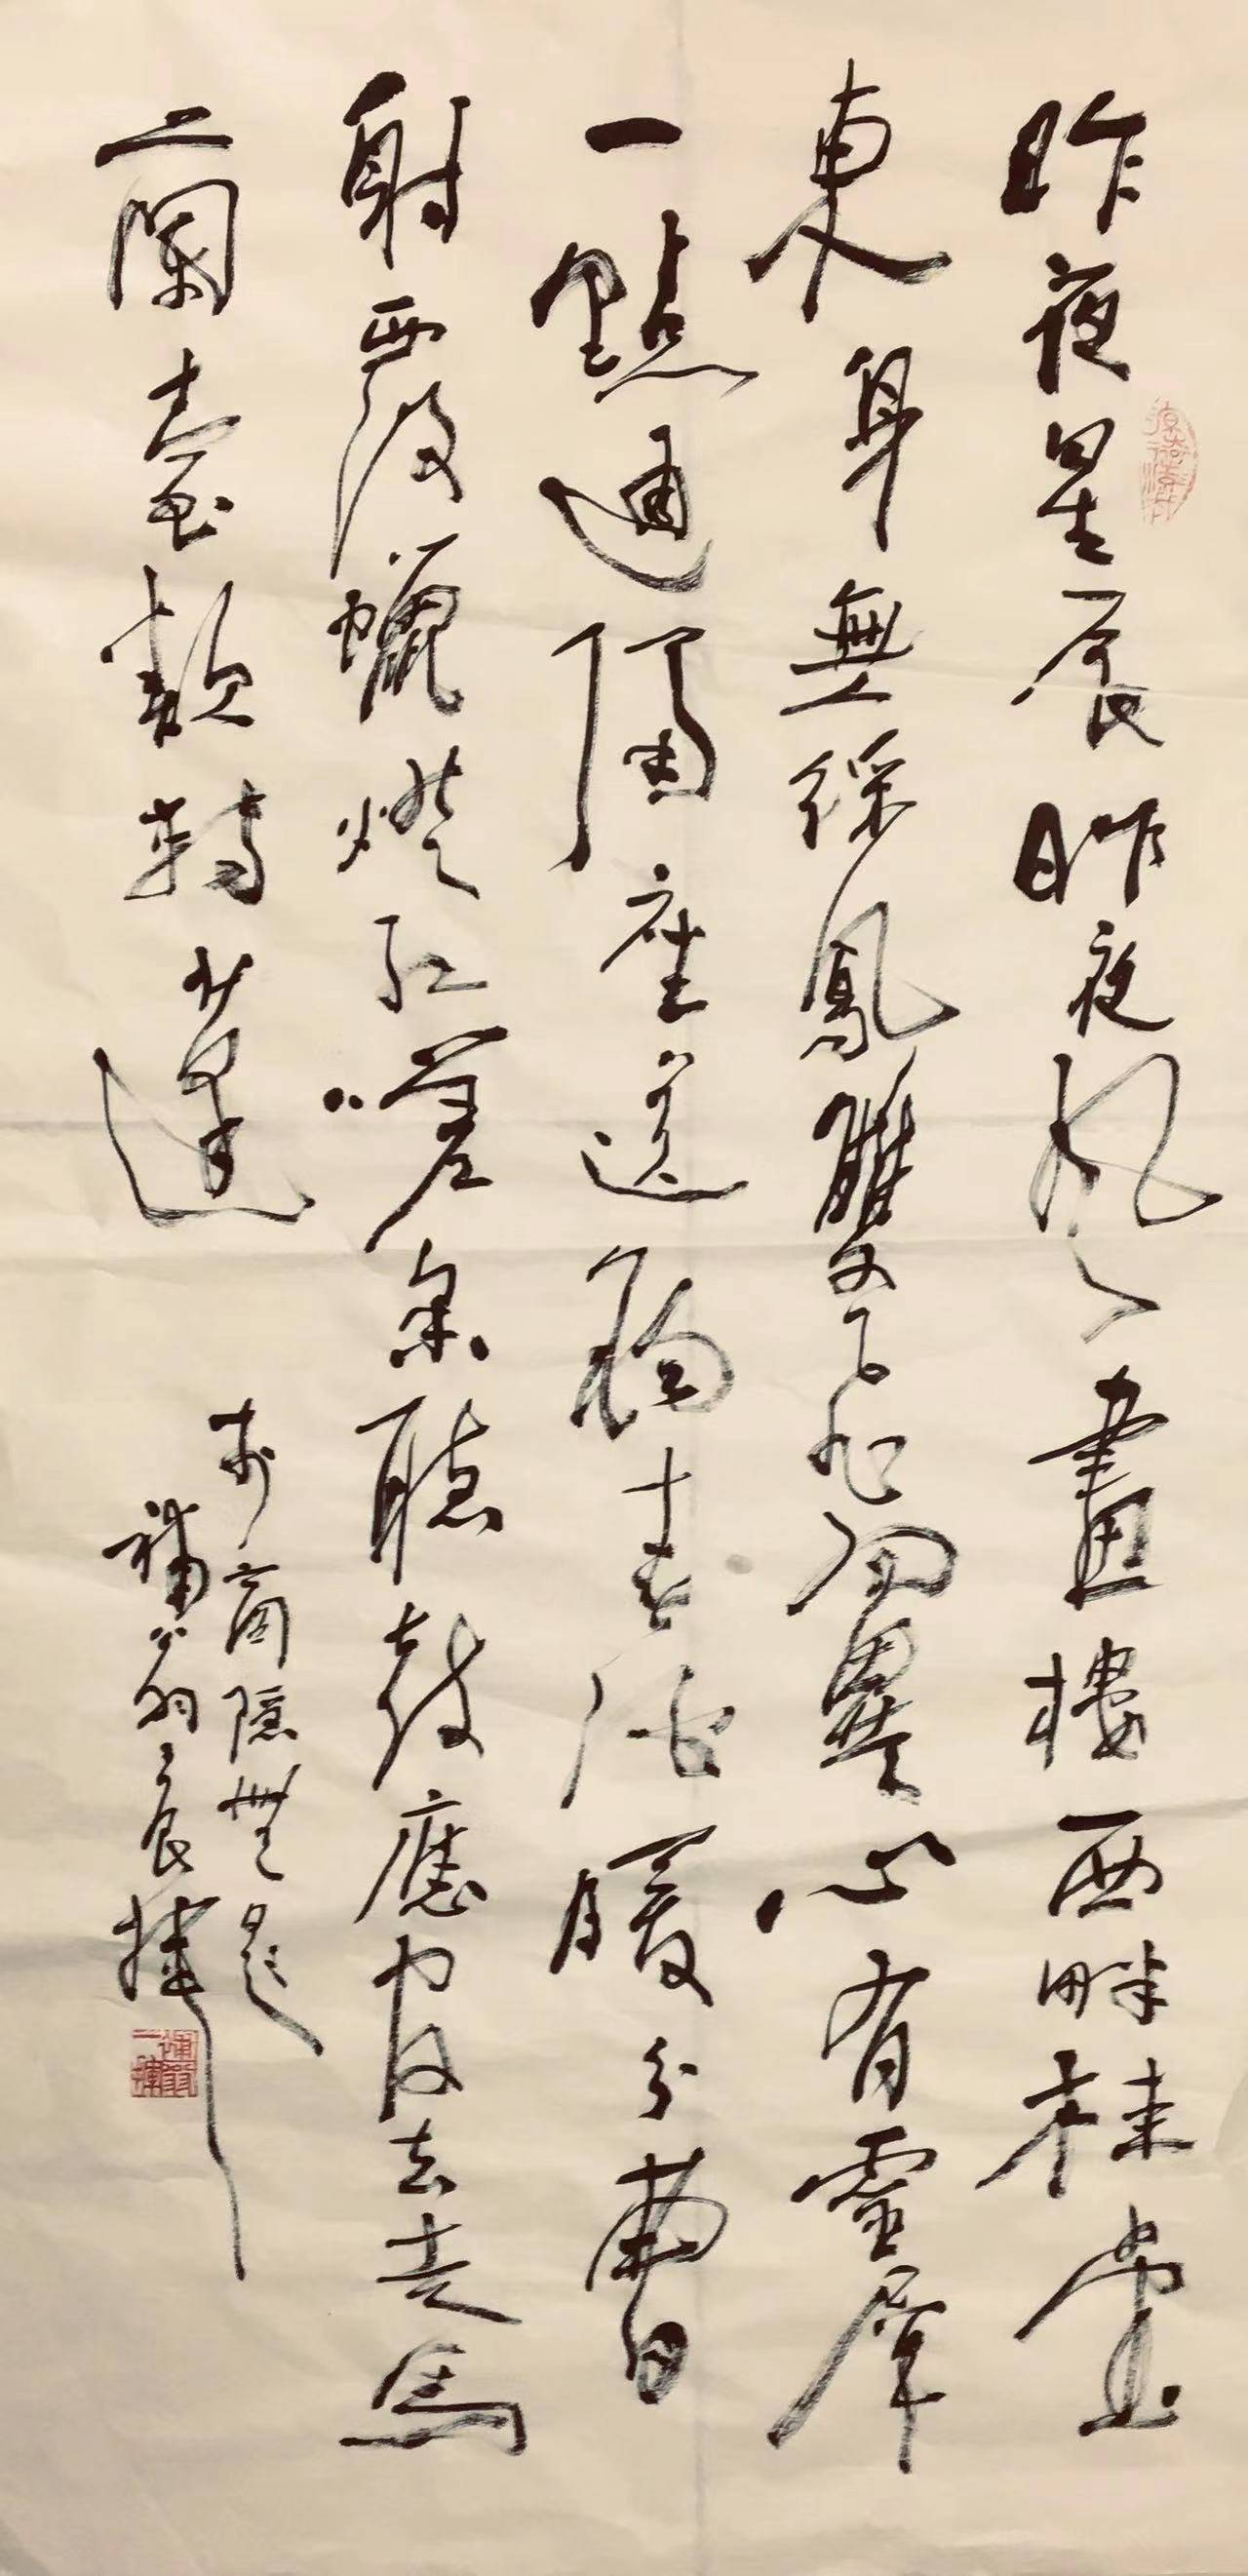 昨夜星辰昨夜風畫樓西畔桂堂
東身無綵鳳雙飛翼心有靈犀
一點通隔座送鉤春酒暖分曹
射覆蠟燈紅嗟余聽鼓應官去走馬
蘭臺類轉蓬
李商隱無題
補翁